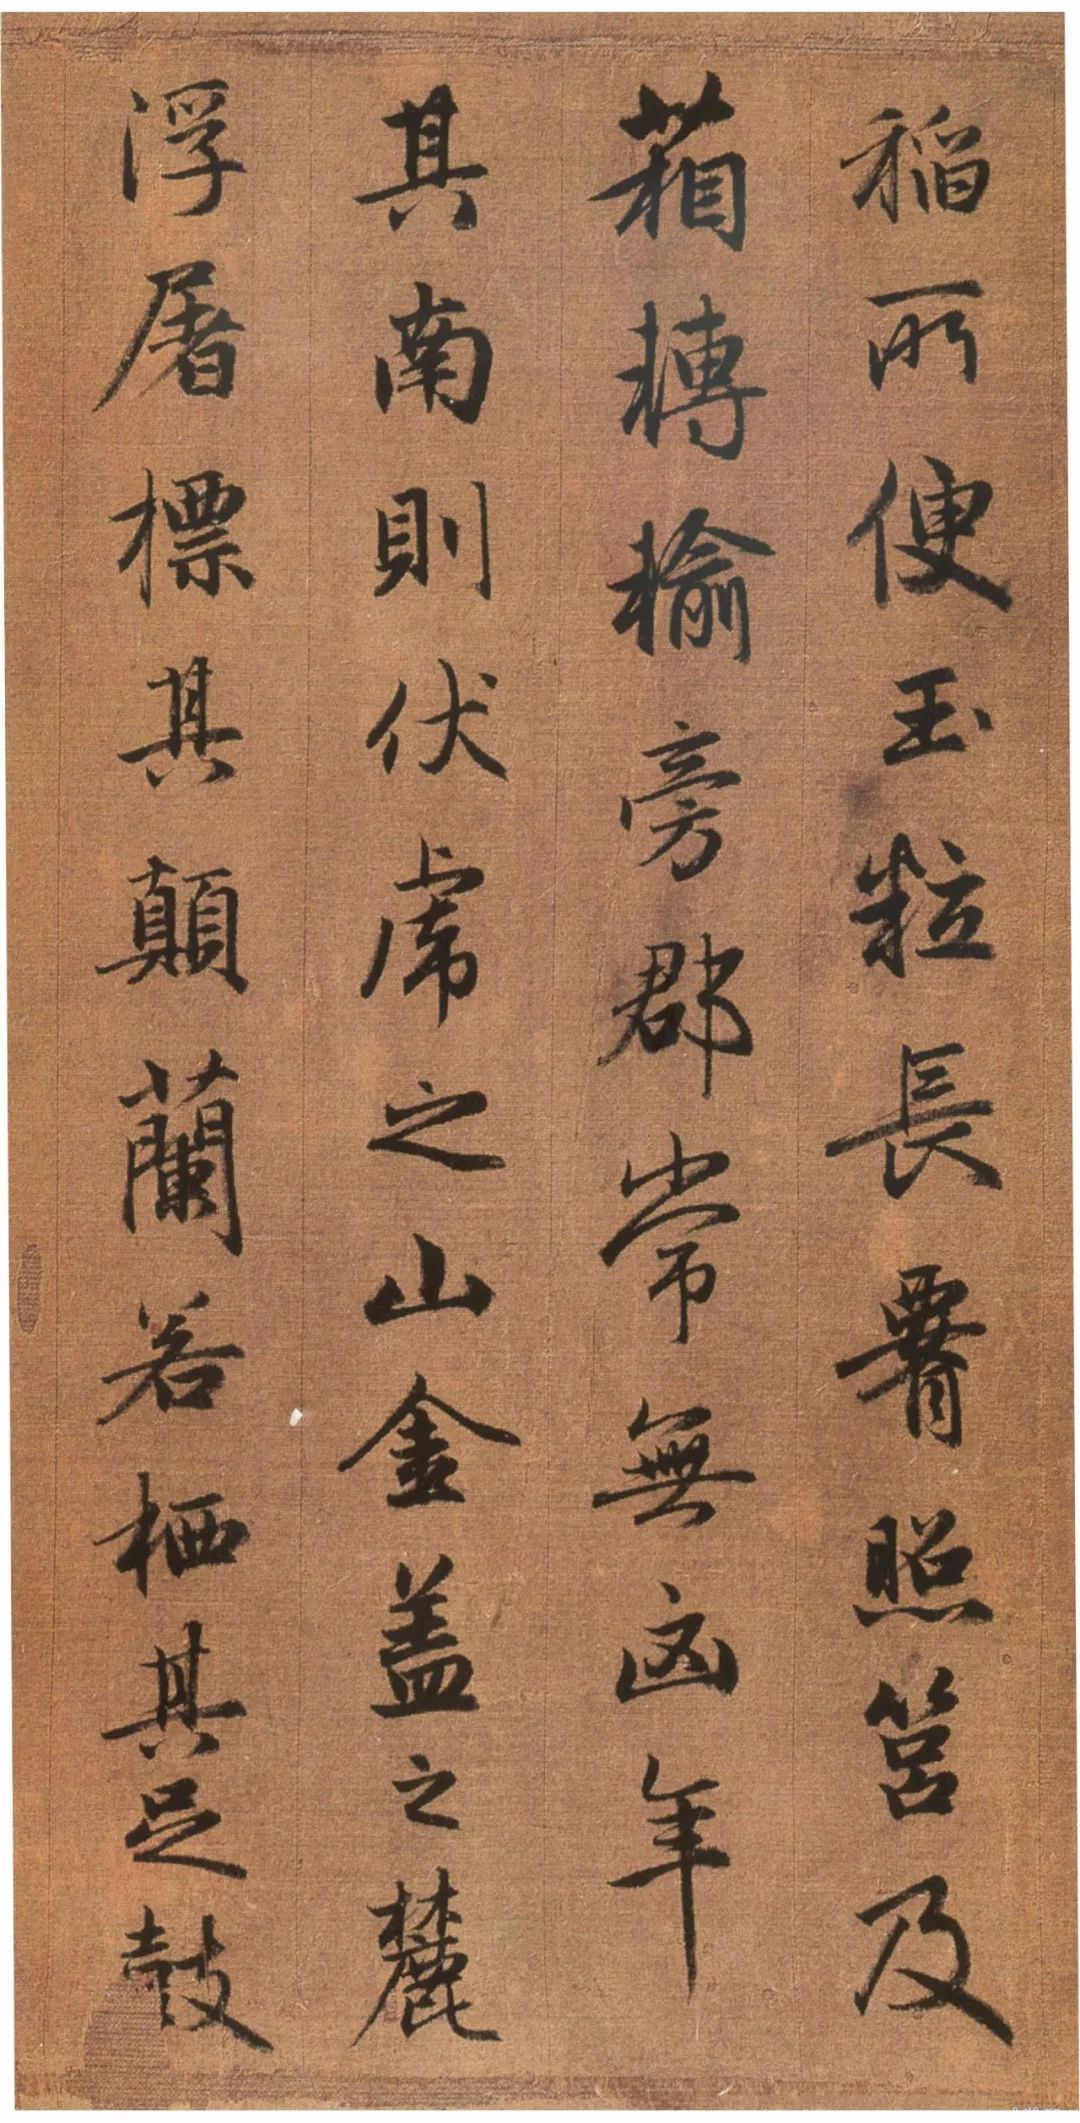 稲所便玉粒長霽照筥及
葙榑榆旁郡常無凶年
其南則伏虎之山金盖之麓
浮屠標其顛蘭若栖其足鼓